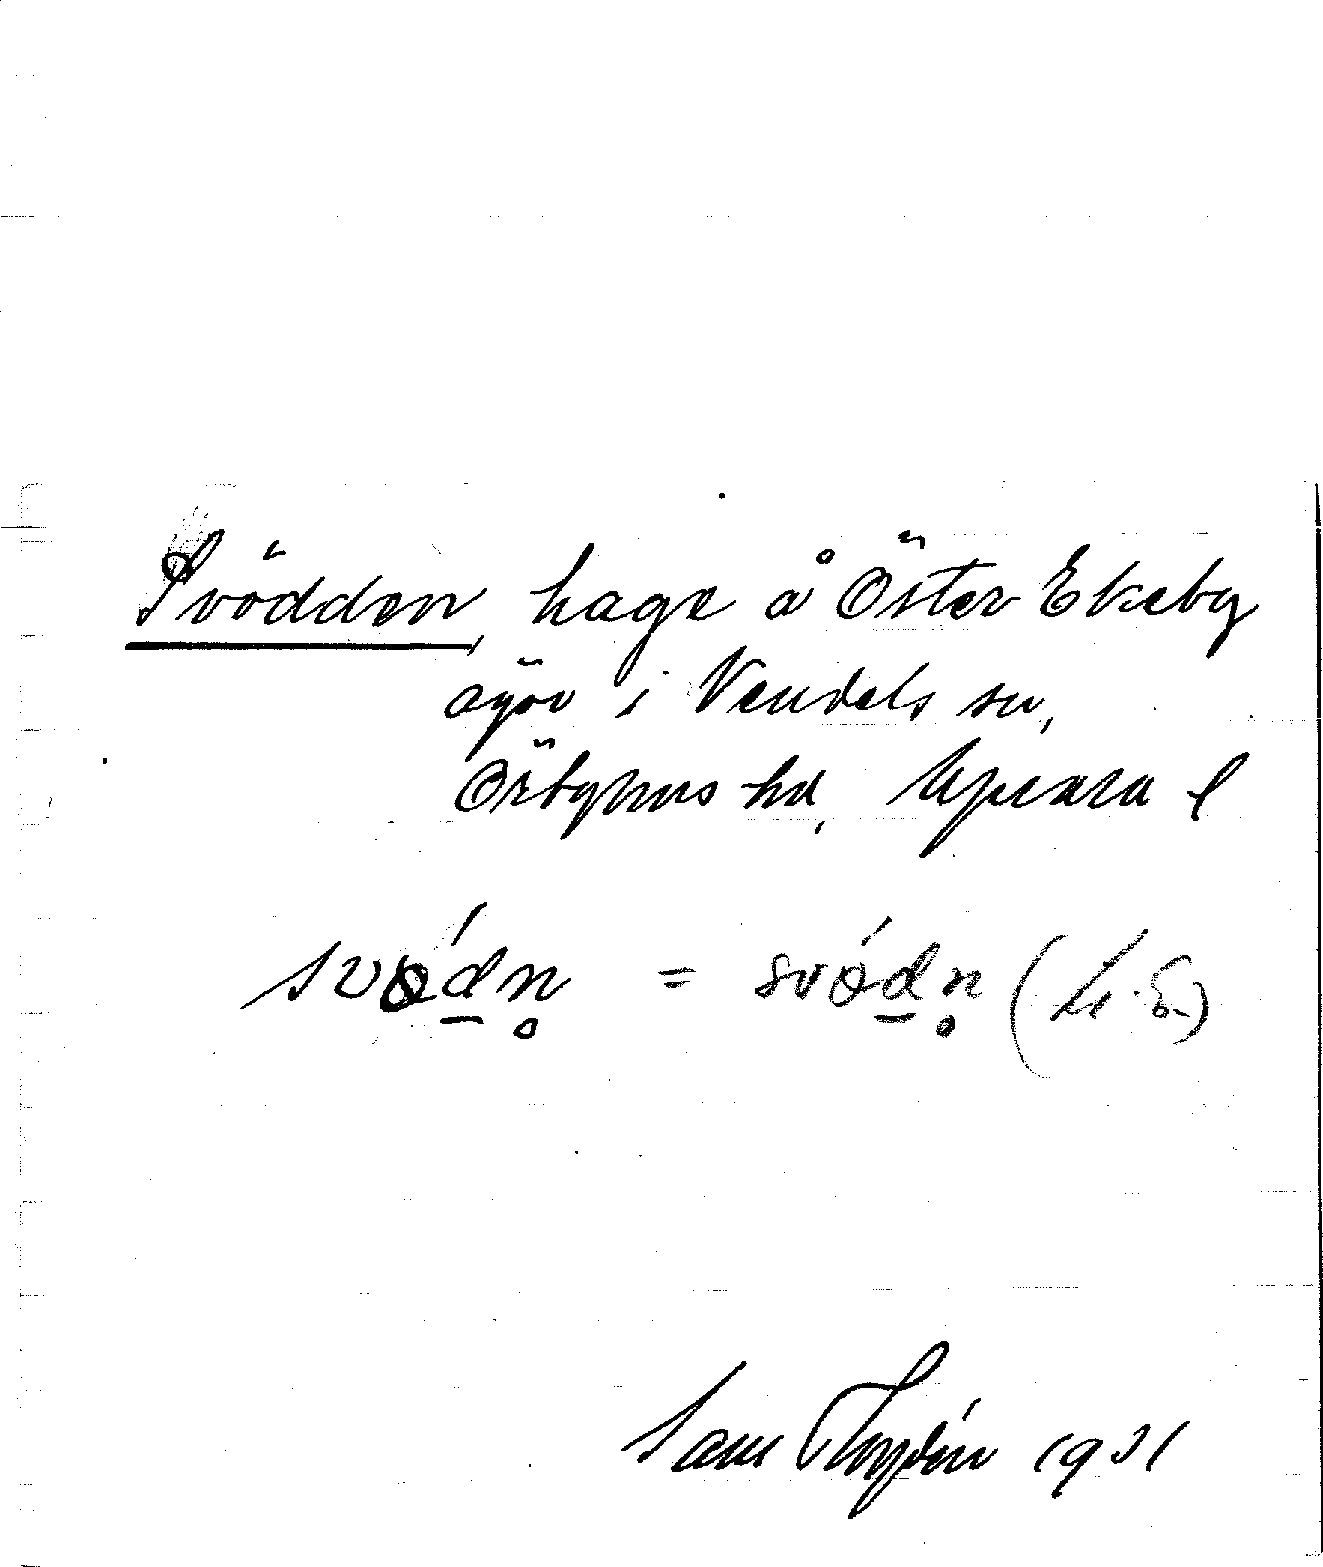 Svödden, hage å Öster Ekeby
ägor i Vendels sn,
Örbyhus hd, Upsala l
svǿd̲n̥ = svǿd̲n̥
Sam 1931